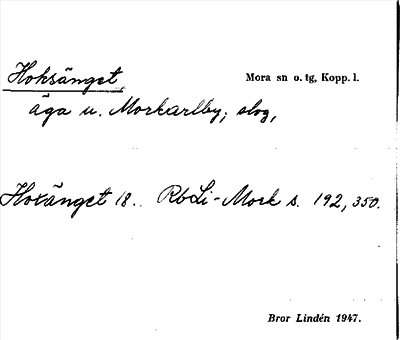 Hoksänget,
Mora sn o. tg, Kopp. l.
äga u. Morkarlby; slog,
Hoxänget 18.. RbLi-Mork s. 192, 350.
Bror Lindén 1947.